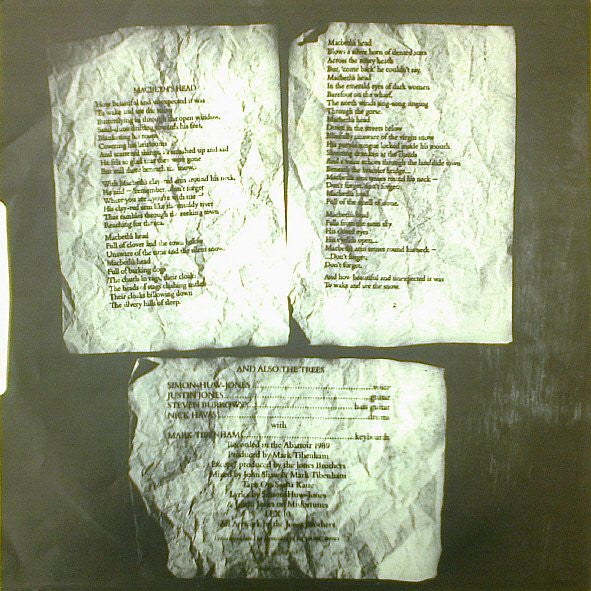 MACBETH'S HEAD
How beautiful and unexpected it was
To wake and see the snow
Butterflying in through the open window,
drifting towards his feet,
Blanketing his room,
Covering his heirlooms
And scattered things, washed up and sad
He felt so glad that they were gone
But still there beneath the snow.
With Macbeth's clay-red arm around his neck,
He said — remember, don't forget
Where you are you're with me
His clay-red arm like the muddy river
That rambles through the smoking town
Reaching for the sea.
Macbeth's head
Full of clover and the town below
Unaware of the time and the silent snow.
Macbeth's head
Full of barking dogs
The chains to rage, their cloaks
The heads of stags clashing antlers
Their cloaks billowing down
The silvery hills of sleep.
Macbeth's head
Blows a silver horn of dented stars
Across the misty heath
But, 'come back' he couldn't say.
Macbeth's head
In the emerald eyes of dark women
Barefoot on the wharf,
The north winds sing-song singing
Through the gorse.
Macbeth's head
Down in the streets below
unaware of the virgin snow
His purple tongue locked inside his mouth
drinkers at the
And echoes through the landslide town
Beneath the
Macbeth's arm comes round his neck —
Don't forget, don't forget.
Macbeth's head
Full of the smell of
Macbeth's head
Falls from the satin sky
His closed eyes
His eyelids open...
Macbeth's arm comes round his neck —
...Don't forget,
Don't forget.
And how beautiful and unexpected it was
To wake and see the snow.
2
AND ALSO THE TREES
SIMON-HUW-JONES voice
JUSTIN JONES guitar
STEVEN BURROWS bass guitar
NICK HAVAS drums
with
MARK TIBENHAM keyboards
Recorded in the Abattoir 1989
Produced by Mark Tibenham
Except produced by the Jones Brothers
Mixed by John Shaw & Mark Tibenham
Tape Op. Sasha Kane
Lyrics by Simon-Huw-Jones
& Justin Jones on Misfortunes
LEX 10
All Artwork by the Jones Brothers